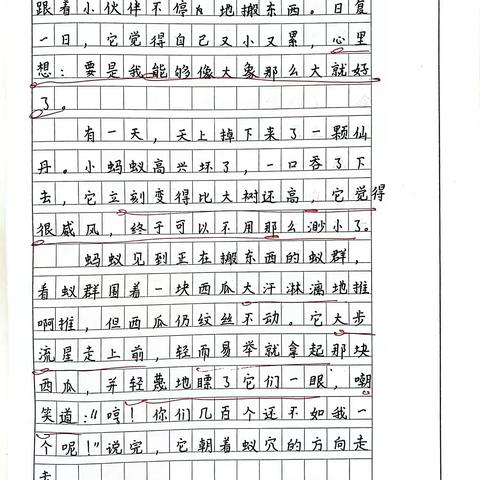 跟着小伙伴不停地搬东西。日复
一日，它觉得自己又小又累，心里
想：要是我能够像大象那么大就好
了。
有一天，天上掉下来了一颗仙
丹。小蚂蚁高兴坏了，一口吞了下
去，它立刻变得比大树还高，它觉得
很威风，终于可以不用那么渺小了。
蚂蚁见到正在搬东西的蚁群，
看蚁群围着一块西瓜大汗淋漓地推
啊推，但西瓜仍纹丝不动。它大步
流星走上前，轻而易举就拿起那块
西瓜，并轻蔑地瞟了它们一眼，嘲
笑道："哼！你们几百个还不如我一
个呢！"说完，它朝着蚁穴的方向走
去